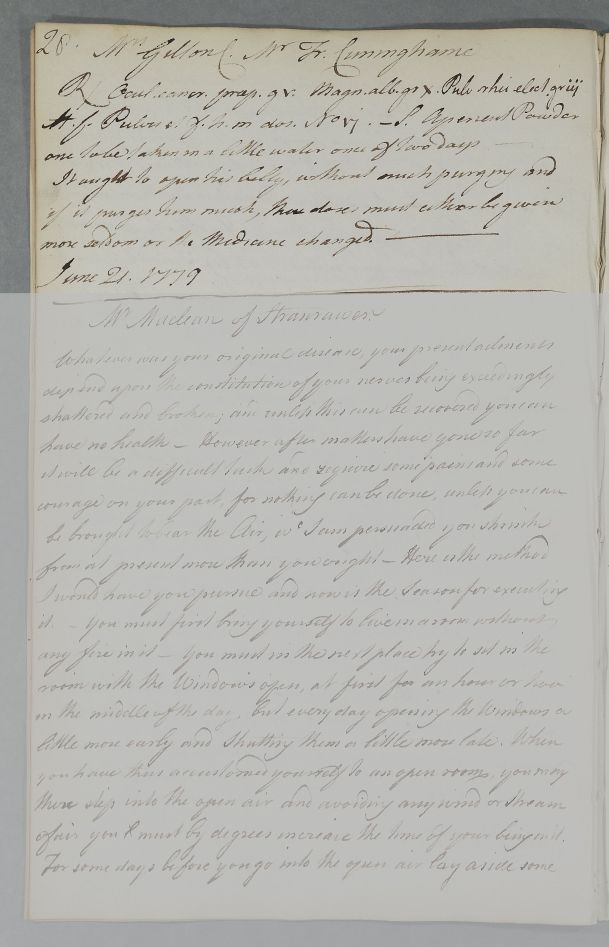 28. Mrs Gilson C. Mr Fr. Cuninghame
R/ Ocul. cancr. prap. gr. Magn. alb. gr x. Pulv rhei elect. gr iij
M. f. Pulvis et f. h. m dos. No vj. — S. Aperient Powder
one to be taken in a little water once of two days —
It ought to open his belly, without much purging and
if it purges him much, the doses must either be given
more seldom or the Medicine changed. —
June 21. 1779
Mr Maclean of Stranraer
Whatever was your original disease, your present ailments
depend upon the constitution of your nerves being exceedingly
shattered and broken; and unless this can be recovered you can
have no health — However after matters have gone so far
it will be a difficult task and require some pains and some
courage on your part, for nothing can be done, unless you can
be brought to bear the Air, wc I am persuaded you shrink
from at present more than you ought — Here is the method
I would have you pursue and now is the Season for executing
it. — you must first bring yourself to live in a room without
any fire in it — you must in the next place try to sit in the
room with the Windows open, at first for an hour or two
in the middle of the day, but every day opening the Windows a
little more early and shutting them a little more late. When
you have thus accustomed yourself to an open room, you may
then step into the open air and avoiding any wind or stream
of air you must by degrees increase the time of your being in it.
For some days before you go into the open air lay aside some